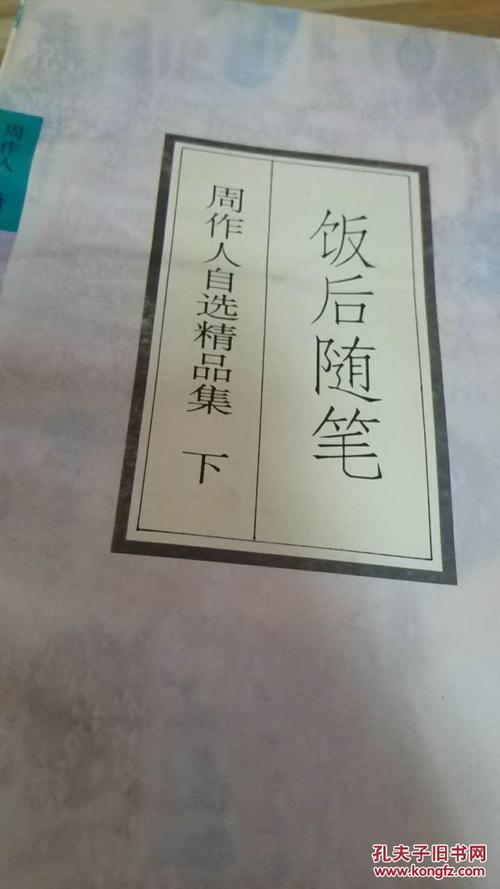 饭后随笔
周作人自选精品集 下
周作人 著
孔夫子旧书网
www.kongfz.com